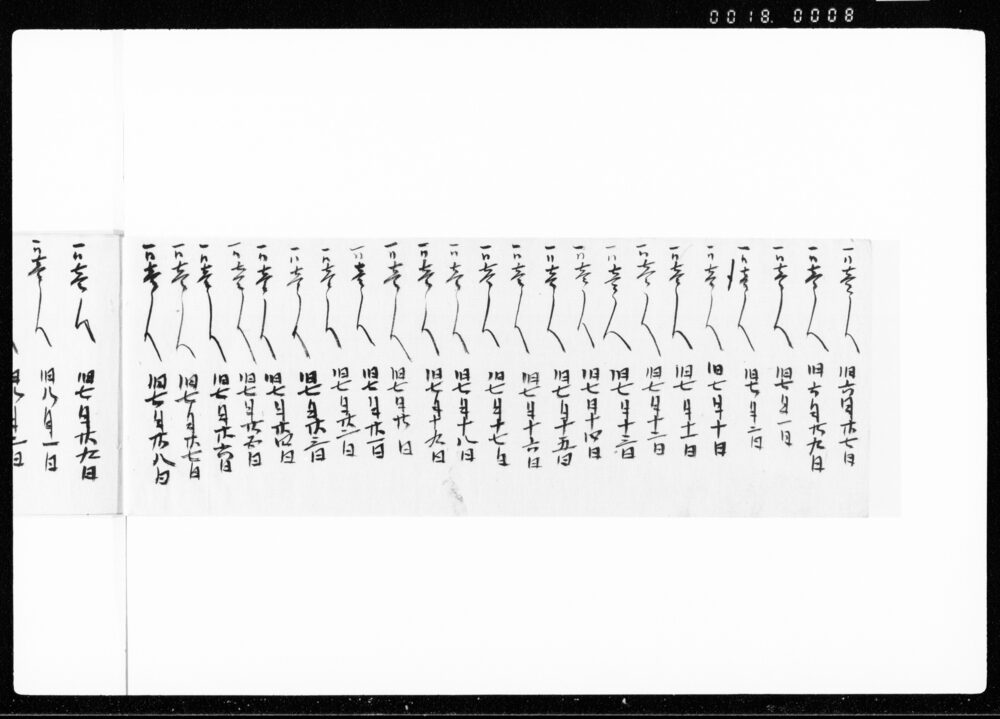 0018. 0008
一同壱人 旧六月廿七日
一同壱人 旧六月廿九日
一同壱人 旧七月一日
一同壱人 旧七月二日
一同壱人 旧七月十日
一同壱人 旧七月十一日
一同壱人 旧七月十二日
一同壱人 旧七月十三日
一同壱人 旧七月十四日
一同壱人 旧七月十五日
一同壱人 旧七月十六日
一同壱人 旧七月十七日
一同壱人 旧七月十八日
一同壱人 旧七月十九日
一同壱人 旧七月廿日
一同壱人 旧七月廿一日
一同壱人 旧七月廿二日
一同壱人 旧七月廿三日
一同壱人 旧七月廿四日
一同壱人 旧七月廿五日
一同壱人 旧七月廿六日
一同壱人 旧七月廿七日
一同壱人 旧七月廿八日
一同壱人 旧七月廿九日
一同壱人 旧八月一日